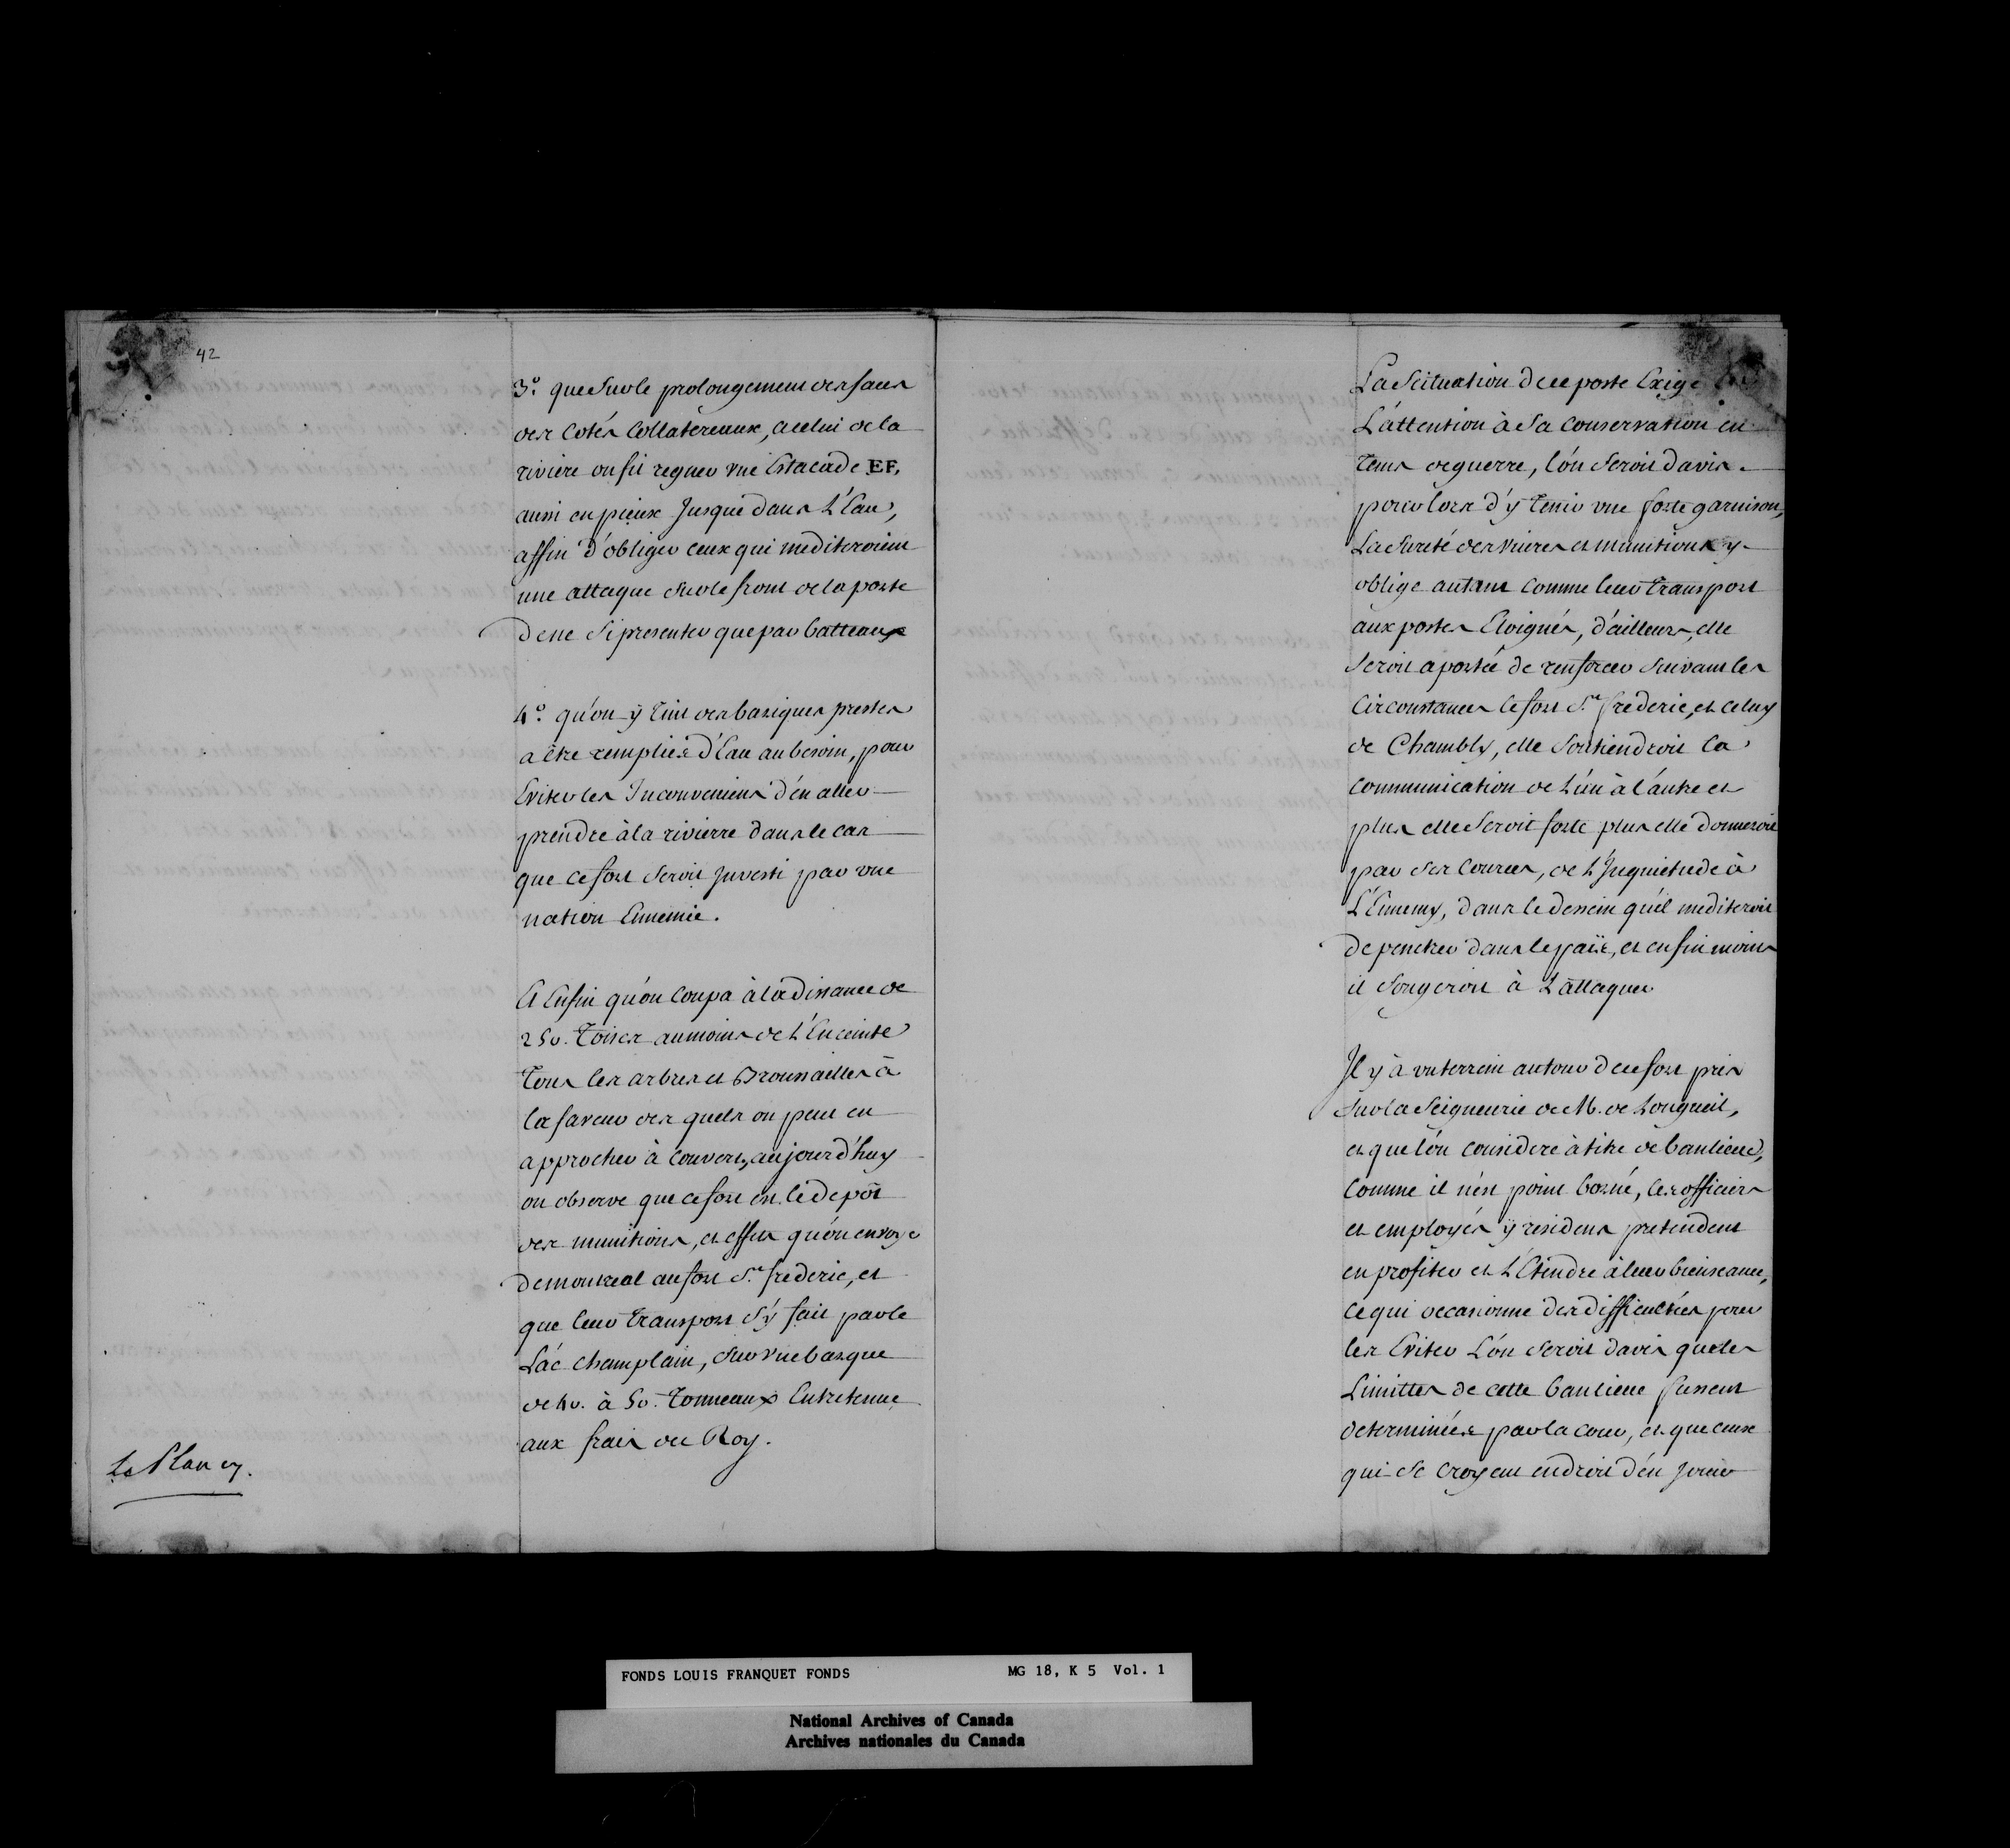 42
3.° que Sur le prolongement des faces
des Cotés Collatereaux, a celui de la
riviere on fit regner vne Estacade EF,
aussi en pieux Jusque dans L'Eau,
affin d'obliger ceux qui mediteroient
une attaque Sur le front de la porte
de ne S'i presenter que par batteaux
4.° qu'on y Tint des bariques prestes
a être remplies d'Eau au besoin, pour
Eviter les Inconveniens d'en aller
prendre à la rivierre dans le cas
que ce fort Seroit Investi par vne
nation Ennemie.
Et Enfin qu'on Coupa à la distance de
250. Toises au moins de L'Enceinte
Tous les arbres et Broussailles à
la faveur des quels on peut en
approcher à Couvert, aujourd'huy
on observe que ce fort est le depôt
des munitions, et effets qu'on envoye
de montreal au fort S.t frederic, et
que leur transport S'y fait par le
Lac Champlain, Sur vne barque
de 40. à 50. Tonneaux Entretenue
aux frais du Roy.
Le Plan cy.
La Scituation de ce poste Exige
L'attention à Sa Conservation en
Tems de guerre, l'on Seroit d'avis
pour lors d'y Tenir vne forte garnison,
La Sureté des vivres et munitions y
oblige autant comme leur transport
aux postes Eloignés, d'ailleurs, elle
Seroit a portée de renforcer Suivant les
Circonstances le fort S.t frederic, et celuy
de Chambly, elle Soutiendroit la
Communication de L'un à l'autre et
plus elle Seroit forte plus elle donneroit
par Ses Courses, de L'Inquietude à
L'Ennemy, dans le dessein qu'il mediteroit
de penetrer dans le païs, et enfin moins
il Songeroit à L'attaquer
Il y à vn terrein autour de ce fort pris
Sur la Seigneurie de M. de Longueil,
et que l'on considere à titre de banlieue,
Comme il n'est point borné, les officiers
et employés y residens pretendent
en profiter et L'Etendre à leur bienseance,
Ce qui occasionne des difficultées pour
les Eviter L'on Seroit d'avis que les
Limittes de cette banlieue fussent
determinées par la cour, et que ceux
qui Se Croyent en droit d'en Jouir
FONDS LOUIS FRANQUET FONDS MG 18, K 5 Vol. 1
National Archives of Canada
Archives nationales du Canada